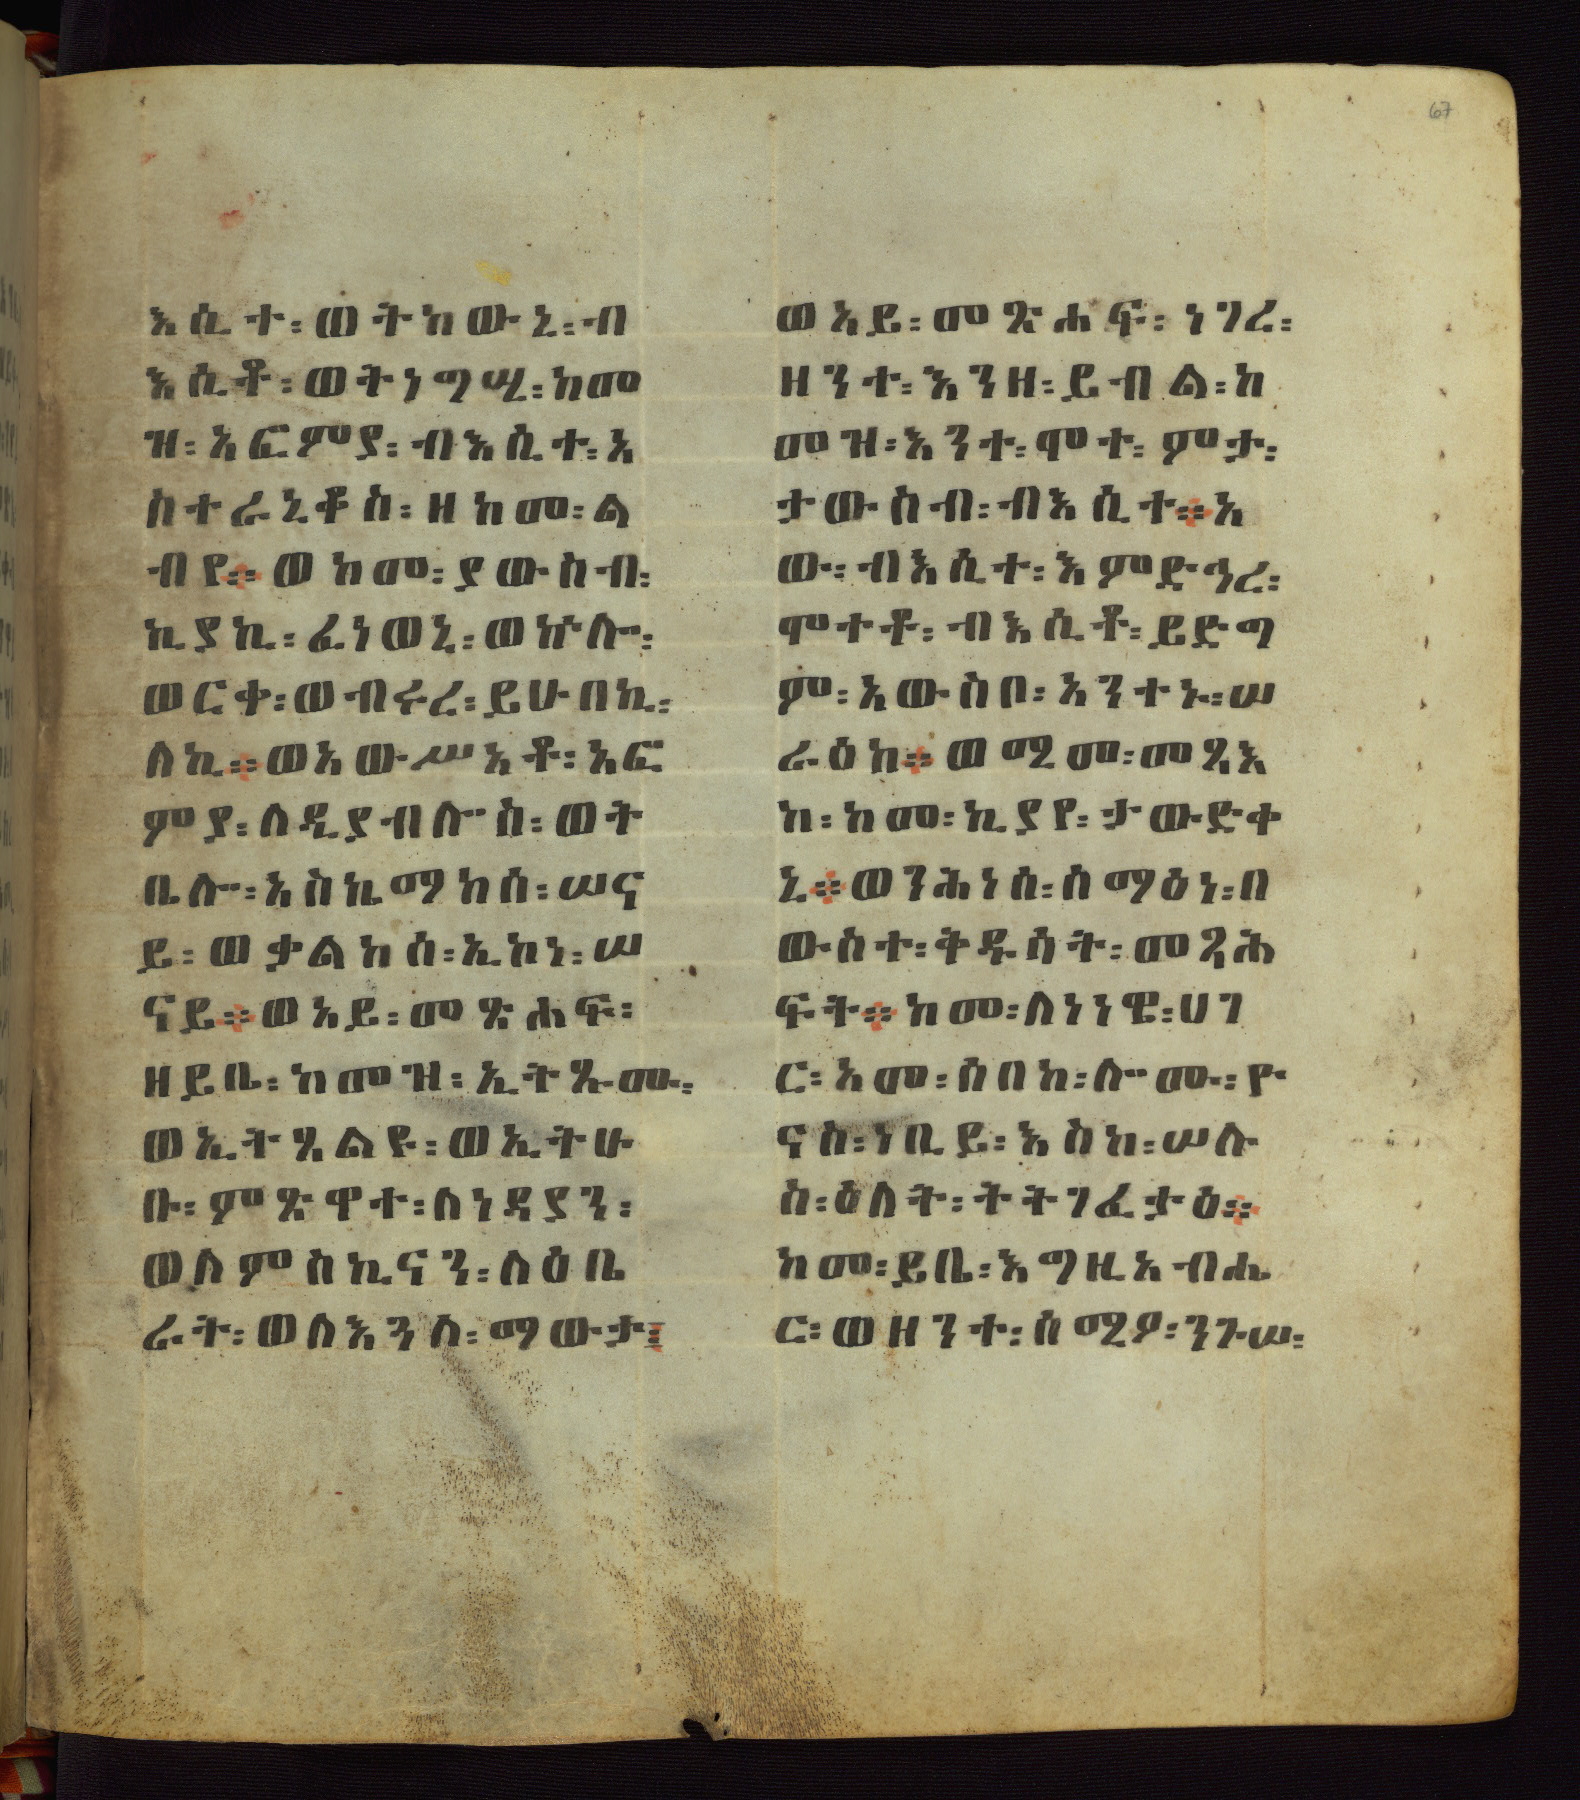 67
እሲተ፡ወትከውኒ፡ብ
እሲቶ፡ወትነግሢ፡ከመ
ዝ፡አፎምያ፡ብእሲተ፡አ
ስተራኒቆስ፡ዘከመ፡ል
ብየ።ወከመ፡ያውስብ፡
ኪያኪ፡ፈነወኒ፡ወኵሎ፡
ወርቀ፡ወብሩረ፡ይሁበኪ፡
ለኪ።ወአውሥአቶ፡አፎ
ምያ፡ለዲያብሎስ፡ወት
ቤሎ፡አስኪማከሰ፡ሠና
ይ፡ወቃልከሰ፡ኢኮነ፡ሠ
ናይ።ወአይ፡መጽሐፍ፡
ዘይቤ፡ከመዝ፡ኢትጹሙ፡
ወኢትጸልዩ፡ወኢትሀ
ቡ፡ምጽዋተ፡ለነዳያን፡
ወለምስኪናን፡ለዕቤ
ራት፡ወለእጓለ፡ማውታ፤
ወአይ፡መጽሐፍ፡ነገረ፡
ዘንተ፡እንዘ፡ይብል፡ከ
መዝ፡እንተ፡ሞተ፡ምታ፡
ታውስብ፡ብእሲተ።አ
ው፡ብእሲተ፡እምድኅረ፡
ሞተቶ፡ብእሲቶ፡ይድግ
ም፡አውስቦ፡አንተኑ፡ሠ
ራዕከ።ወሚመ፡መጻእ
ከ፡ከመ፡ኪያየ፡ታውድቀ
ኒ።ወንሕነሰ፡ሰማዕነ፡በ
ውስተ፡ቅዱሳት፡መጻሕ
ፍት።ከመ፡ለነነዌ፡ሀገ
ር፡አመ፡ሰበከ፡ሎሙ፡ዮ
ናስ፡ነቢይ፡እስከ፡ሠሉ
ስ፡ዕለት፡ትትገፈታዕ።
ከመ፡ይቤ፡እግዚአብሔ
ር፡ወዘንተ፡ሰሚዖ፡ንጉሠ፡